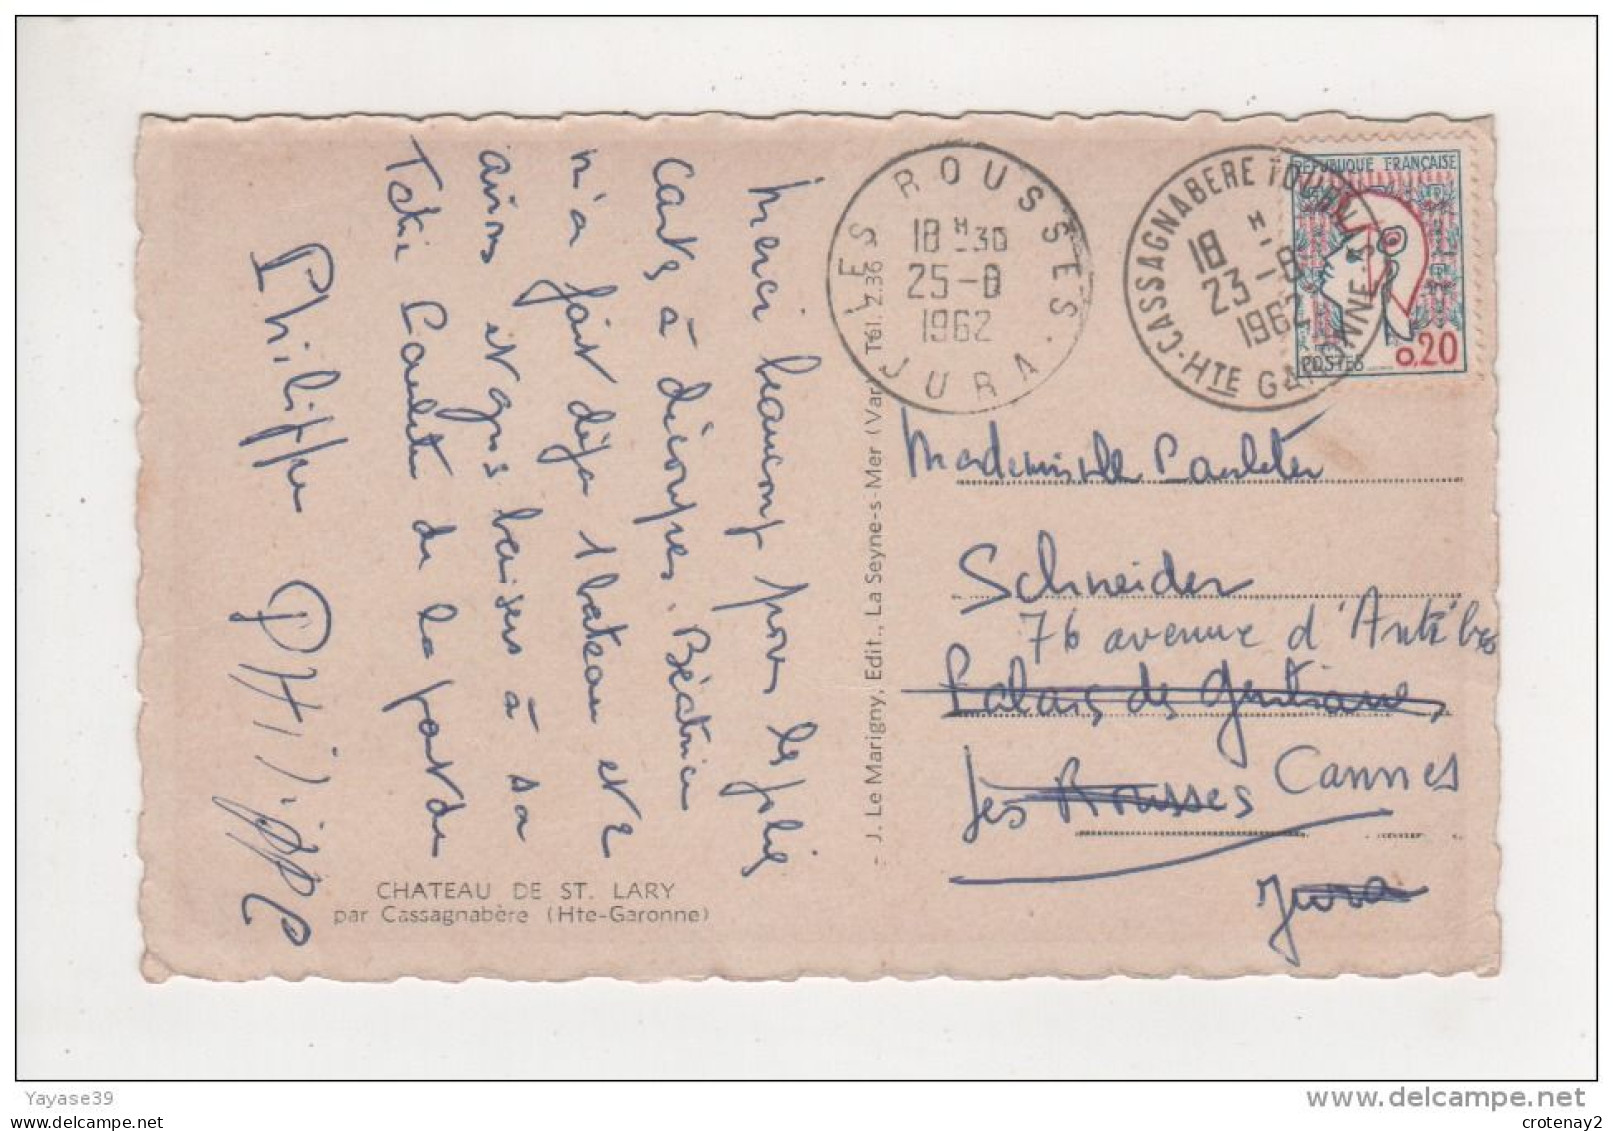 Merci beaucoup pour les jolies
carts à découpes. Béatrice
m'a fait déja 1 bateau et 2
avions et gros baisers à sa
Tatie Paulette de la part de
Philippe PHiliPPe
CHATEAU DE ST. LARY
par Cassagnabère (Hte-Garonne)
- J. Le Marigny, Edit., La Seyne-s-Mer (Var) Tél. 2.36
LES ROUSSES
18 H 30
25-8
1962
JURA
CASSAGNABERE TOURNAS
18 H
23-8
1962
HTE GARONNE
REPUBLIQUE FRANÇAISE
0,20
POSTES
Mademoiselle Paulette
Schneider
76 avenue d'Antibes
Palais des Gentianes
Les Rousses Cannes
Jura
Yayase39
www.delcampe.net
posté par
crotenay2